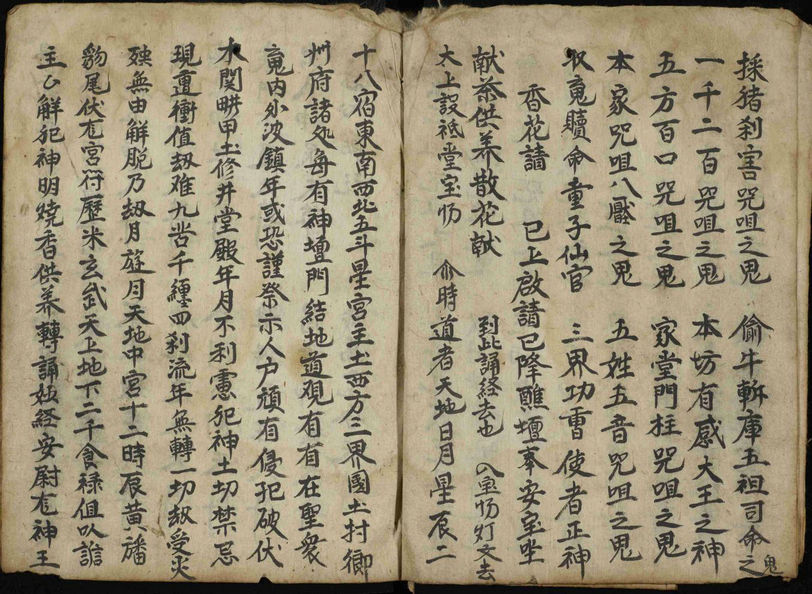 採猪刹害咒咀之鬼　偷牛斬庫五祖司命之鬼
一千二百咒咀之鬼　本坊有感大王之神
五方百口咒咀之鬼　家堂門拄咒咀之鬼
本家咒咀八魘之鬼　五姓五音咒咀之鬼
収䰟贖命童子仙官　三界功曹使者正神
香花請　已上啟請已降醮壇奉安宝坐
献茶供养散花献　到此誦経去也
太上設祇堂宝　時道者天地日月星辰二
十八宿東南西北五斗星宮主土西方三界國土村鄉
州府諸処每有神壇門結地道观有有在聖衆
䰟内外波鎮年或恐謹祭示人户頑有侵犯破伏
水関畊甲土修井堂殿年月不利慮犯神土切禁忌
現遭衝值刼难九苦千纒四刹流年無轉一切刼受灾
殃無由解脫乃刼月旌月天地中宮十二時辰黄旙
豹尾伏宮符歷米玄武天上地下二千食禄俱以
主公解犯神明燒香供养轉誦妙経安尉神王